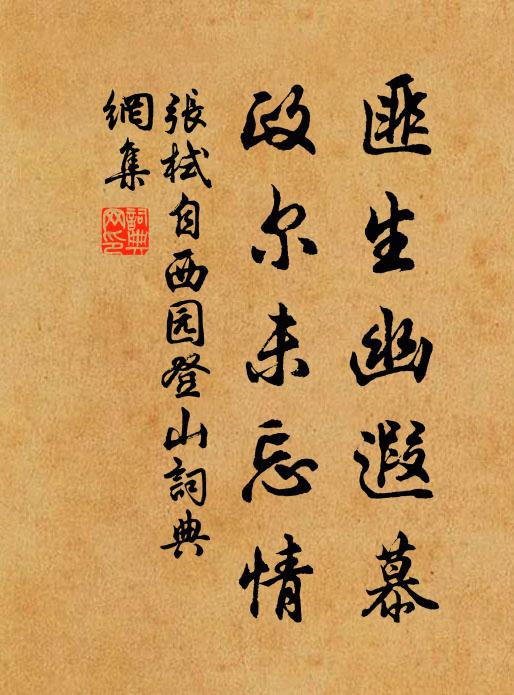 匪生幽遐慕
政尔未忘情
張栻自西园登山詞典
網集
詞典網印